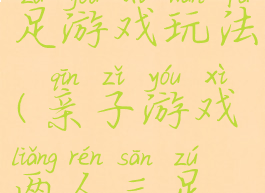 足游戏玩法
qīn zǐ yóu xì
(亲子游戏
liǎng rén sān zú
两人三足